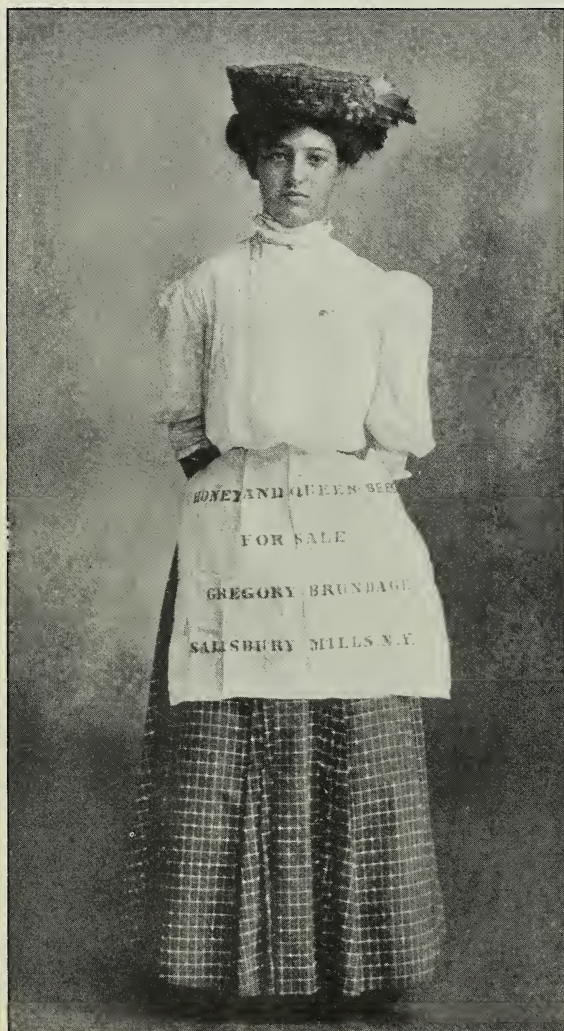 HONEY AND QUEEN BEES
FOR SALE
GREGORY BRUNDAGE
SALISBURY MILLS N.Y.